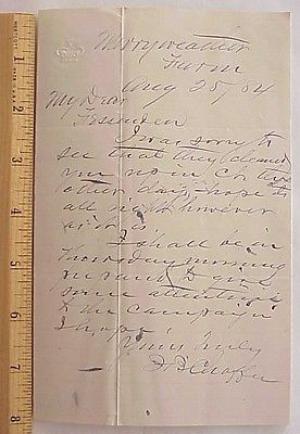 Merryweather
Farm
Aug 25/04
My Dear
Fessenden
I was sorry to
see that they cleaned
you up in C's
other day. I hope its
all right however
as it is
I shall be in
Thursday morning
and to give
some attention
to the campaign
I hope
Yours truly
1
2
3
4
5
6
7
8